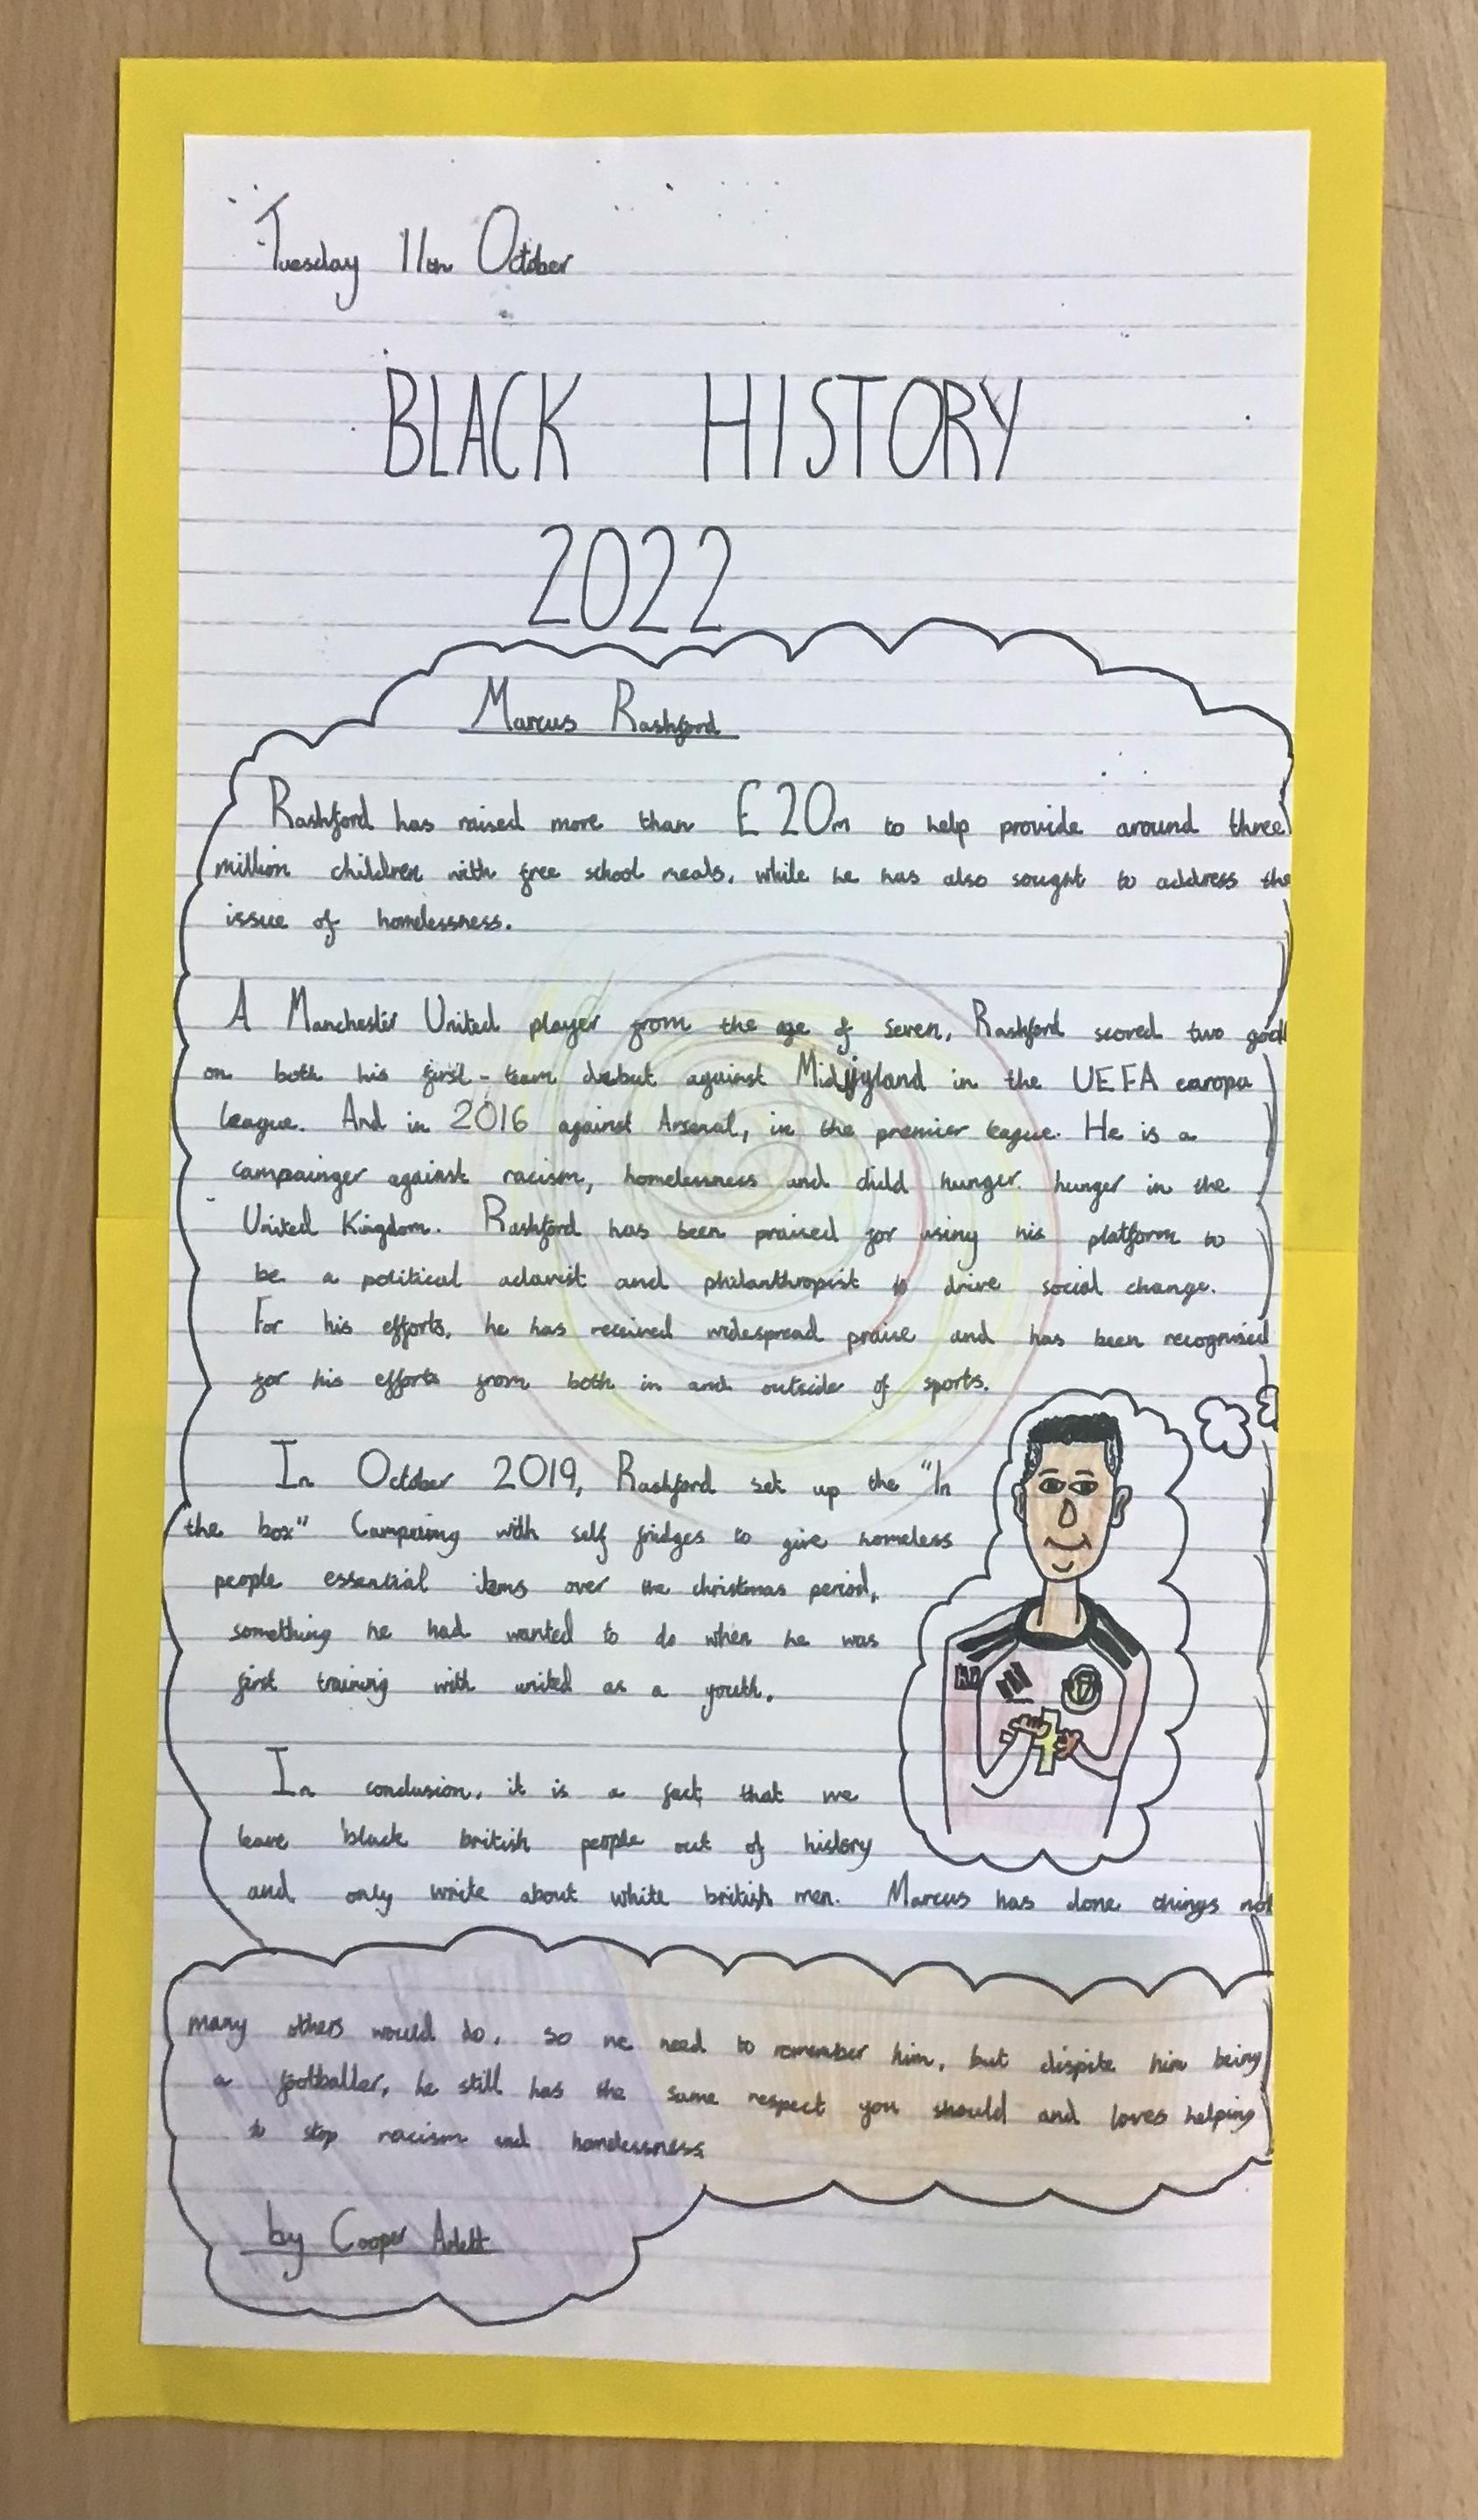 Tuesday 11th October
BLACK HISTORY
2022
Marcus Rashford
Rashford has raised more than £20m to help provide around three
million children with free school meals, while he has also sought to address the
issue of homelessness.
A Manchester United player from the age of seven, Rashford scored two goal
on both his first-team debut against Midjyland in the UEFA europa
league. And in 2016 against Arsenal, in the premier league. He is a
campainger against racism, homelessness and child hunger. hunger in the
United Kingdom. Rashford has been praised for using his platform to
be a political activist and philanthropist to drive social change.
For his efforts, he has received widespread praise and has been recognised
for his efforts from both in and outside of sports.
In October 2019, Rashford set up the "In
the box" Campaing with self fridges to give homeless
people essential items over the christmas period,
something he had wanted to do when he was
first training with united as a youth.
In conclusion, it is a fact that we
leave black british people out of history
and only write about white british men. Marcus has done things not
many others would do, so we need to remember him, but despite him being
a footballer, he still has the same respect you should and loves helping
to stop racism and homelessness
by Cooper